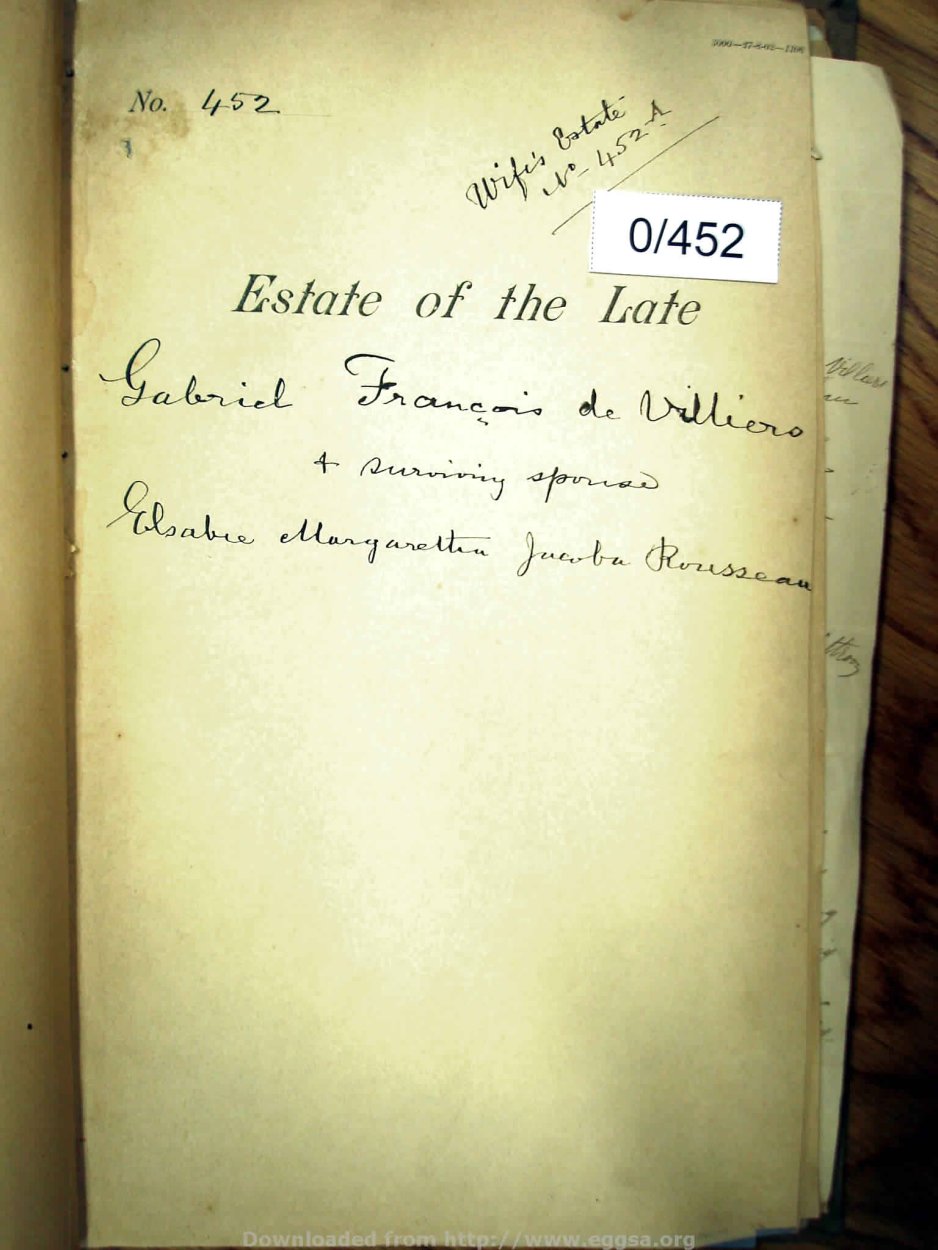 No. 452
Wife's Estate
No 452 A
0/452
Estate of the Late
Gabriel François de Villiers
+ surviving spouse
Elsabie Margaretha Jacoba Rousseau
Downloaded from http://www.eggsa.org